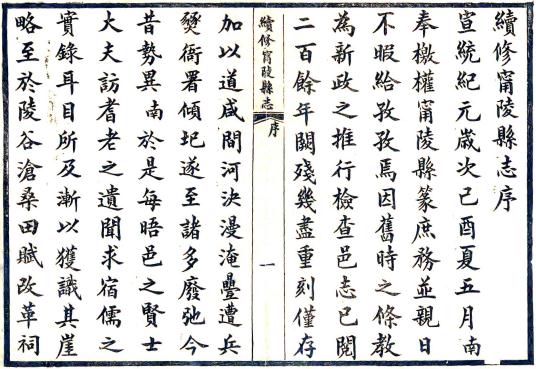 續修甯陵縣志序
宣統紀元歲次己酉夏五月南
奉檄權甯陵縣篆庶務並親日
不暇給孜孜焉因舊時之條教
為新政之推行檢查邑志已閱
二百餘年闕殘幾盡重刻僅存
續修甯陵縣志
序
一
加以道咸間河決漫淹疊遭兵
燹衙署傾圯遂至諸多廢弛今
昔勢異南於是每晤邑之賢士
大夫訪耆老之遺聞求宿儒之
實錄耳目所及漸以獲識其崖
略至於陵谷滄桑田賦改革祠